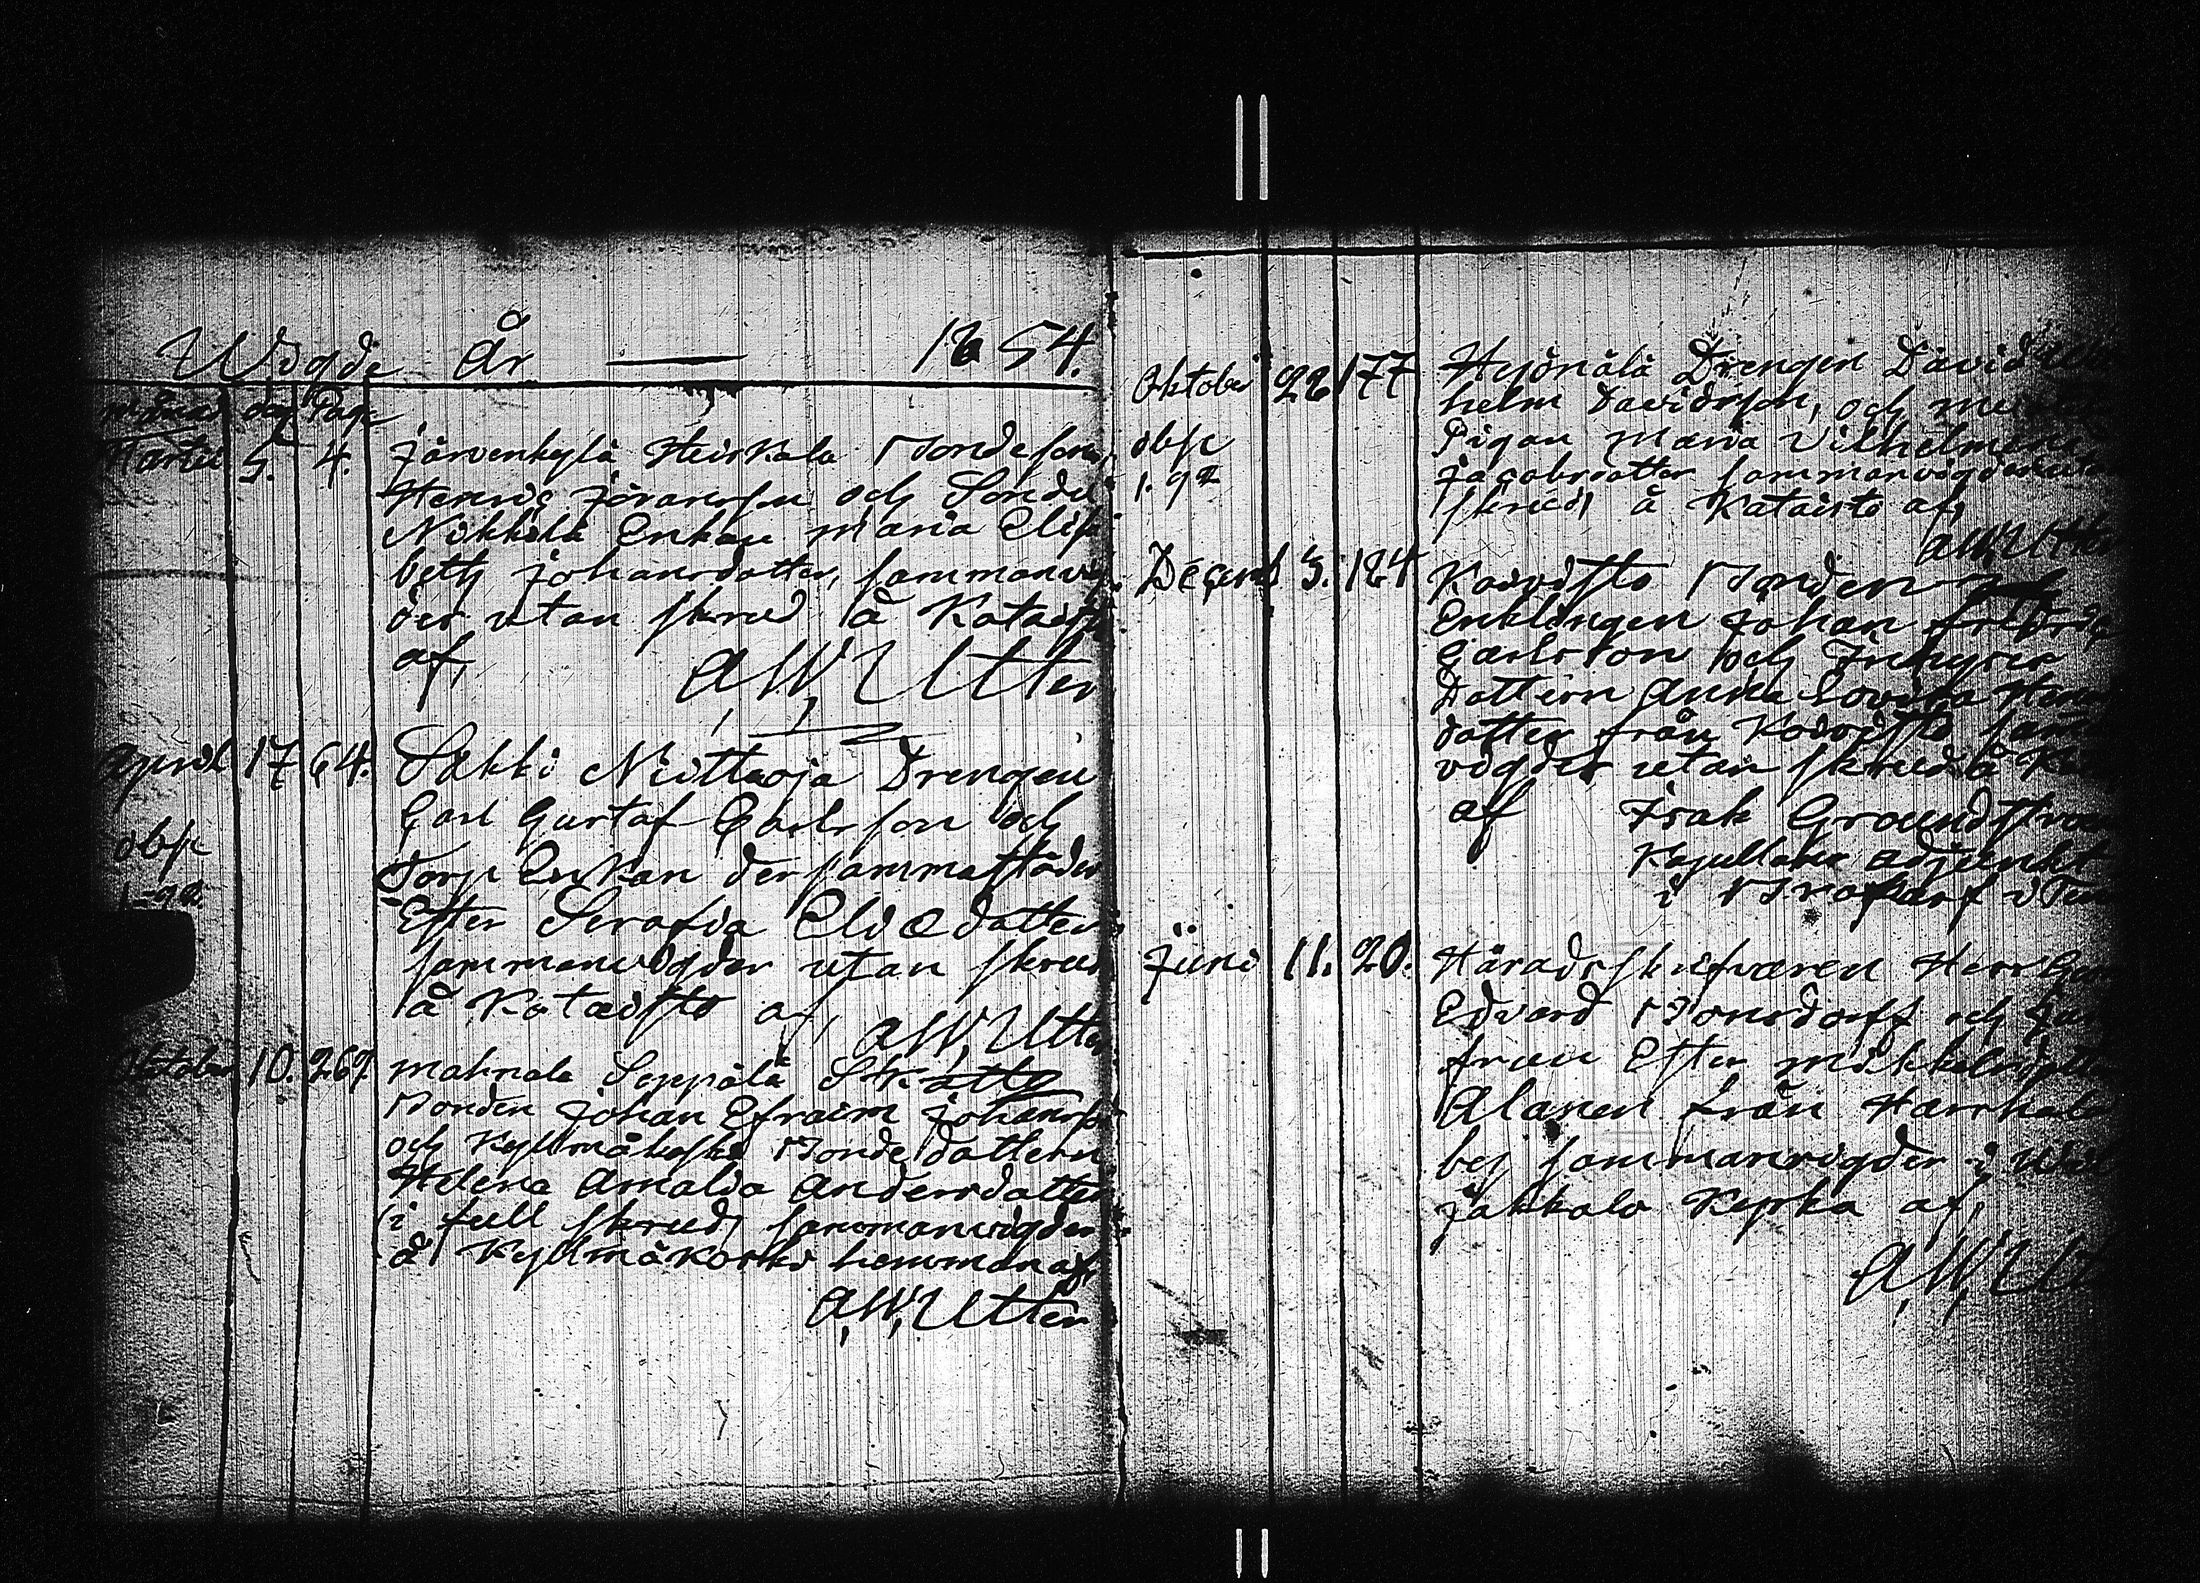 Wigde År — 1854.
månad dag Pag.
Martii 5. 4. Järvenkylä Heiskala Bondeson
Henric Jöransson och Sondil
Nikkilä Enkan Maria Elisa
beth Johansdotter, sammanvig
der utan skrud å Kataisto
af, A, W, Utter
April 17 64. Säkki Niittuoja Drengen
Carl Gustaf Carlsson och
obs Torp Enkan dersammastädes
Ester Serafia Eliædotter
sammanvigder utan skrud
å Kataisto af, A W, Utter
Oktober 10. 267 Mahnala Seppälä Skatte
Bonden Johan Efraim Johans
och Kyllmäkoski Bondedottern
Helena Amalia Andersdotter
i full skrud sammanvigder
å Kyllmäkoski hemman af,
A, W, Utter
Oktober 22 177 Heiönälä Drengen David
helm Davidsson, och
obs Pigan Maria Vilhelmina
1. 92 Jacobsdotter sammanvigde
skrud å Kataisto af,
A, W, Utter
Decemb 3. 184 Koivisto Bonden
Enklingen Johan Fredric
Carlsson och Inhyses
Dottern Anna Lovisa
dotter från Koivisto sam
vigder utan skrud å
af Isak Groundstroem
Kapellans adjunkt
i
Juni 11. 20. Häradsskrifvaren Herr
Edvard Bonsdorff och
frun Ester Mikkelsdotter
Alanen från Harhala
by, sammanvigder i
jakkala Kyrka af,
A, W, Ut